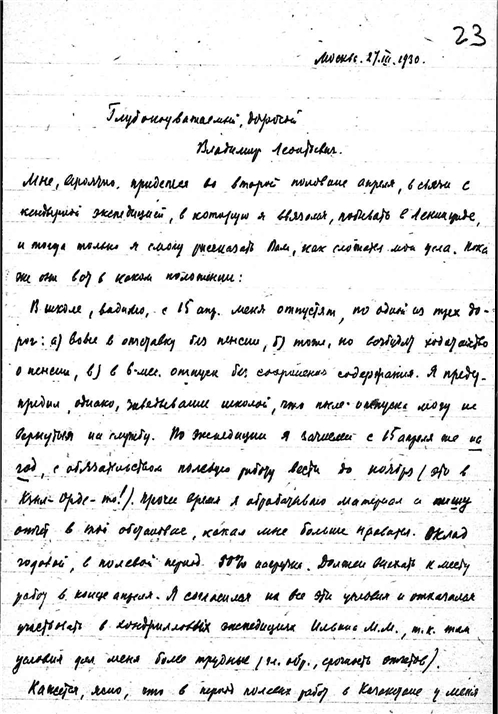 23
Москва. 27.III.1930.
Глубокоуважаемый, дорогой
Владимир Леонтьевич.
Мне, придется во второй половине апреля, в связи с
экспедицией, в которую я ввязался, побывать в Ленинграде,
и тогда только я смогу рассказать Вам, как сложатся мои дела. Пока
же они вот в каком положении:
В школе, видимо, с 15 апр. меня отпустят, по одной из трех до-
рог: а) вовсе в отставку без пенсии, б) тоже, но возбудят ходатайство
о пенсии, в) в 6-мес. отпуск без сохранения содержания. Я преду-
предил, однако, заведывание школой, что после отпуска могу не
вернуться на службу. По экспедиции я зачислен с 15 апреля на
год, с обязательством полевую работу вести до ноября (это в
Кзыл-Орде-то!). Прочее время я обрабатываю материал и пишу
отчет в той обстановке, какая мне больше нравится. Оклад
годовой, в полевой период 50% нагрузки. Должен выехать к месту
работ в конце апреля. Я согласился на все эти условия и отказался
участвовать в хондрилловых экспедициях Ильина М.М., т.к. там
условия для меня более трудные (гл. обр., срочность отчетов).
Кажется, ясно, что в период полевых работ в Казакстане у меня